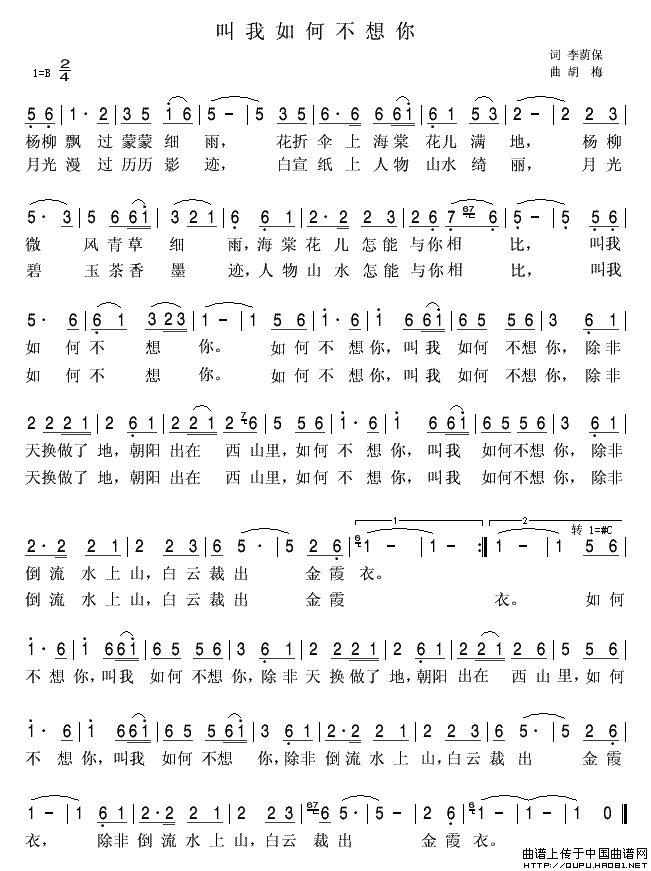 叫我如何不想你
词 李荫保
1=B 2/4
曲 胡 梅
5 6 | 1· 2 | 3 5 1 6 | 5 - | 5 3 5 | 6·6 5 6 | 1 6 5 3 | 2 - | 2 2 3 |
杨柳飘过蒙蒙细雨，花折伞上海棠花儿满地，杨柳
月光漫过历历影迹，白宣纸上人物山水绮丽，月光
5· 3 | 5 6 6 1 | 3 2 1 | 6 6 1 | 2·2 3 2 | 2 6 7 67 6 | 5 - | 5 5 6 |
微风青草细雨，海棠花儿怎能与你相比，叫我
碧玉茶香墨迹，人物山水怎能与你相比，叫我
5· 6 | 6 1 3 2 3 | 1 - | 1 5 5 | 1· 6 | 1 6 6 1 | 6 5 5 5 6 | 3 6 1 |
如何不想你。如何不想你，叫我如何不想你，除非
如何不想你。如何不想你，叫我如何不想你，除非
2 2 2 2 1 | 2 6 1 | 2 2 2 1 2 7 6 | 5 5 6 | 1· 6 | 1 6 6 1 | 6 5 5 5 6 | 3 6 1 |
天换做了地，朝阳出在西山里，如何不想你，叫我如何不想你，除非
天换做了地，朝阳出在西山里，如何不想你，叫我如何不想你，除非
1 2 转 1=#C
2·2 2 1 | 2 2 1 | 2 2 3 | 6 5· | 5 2 6 | 6 1 - | 1 - :‖ 1 - | 1 5 6 |
倒流水上山，白云裁出金霞衣。
倒流水上山，白云裁出金霞衣。如何
1· 6 | 1 6 6 1 | 6 5 5 5 6 | 3 6 1 | 2 2 2 2 1 | 2 6 1 | 2 2 2 1 2 6 | 5 5 6 |
不想你，叫我如何不想你，除非天换做了地，朝阳出在西山里，如何
1· 6 | 1 6 6 1 | 6 5 5 5 6 | 3 6 1 | 2·2 2 1 | 2 2 1 | 2 2 3 | 6 5· | 5 2 6 |
不想你，叫我如何不想你，除非倒流水上山，白云裁出金霞
1 - | 1 - | 1 6 1 | 2·2 2 1 | 2 2 1 | 2 2 3 | 67 5 - | 5 - | 2 6 | 6 1 - | 1 - | 1 0 ‖
衣，除非倒流水上山，白云裁出金霞衣。
曲谱上传于中国曲谱网
http://QUPU.HAO81.NET